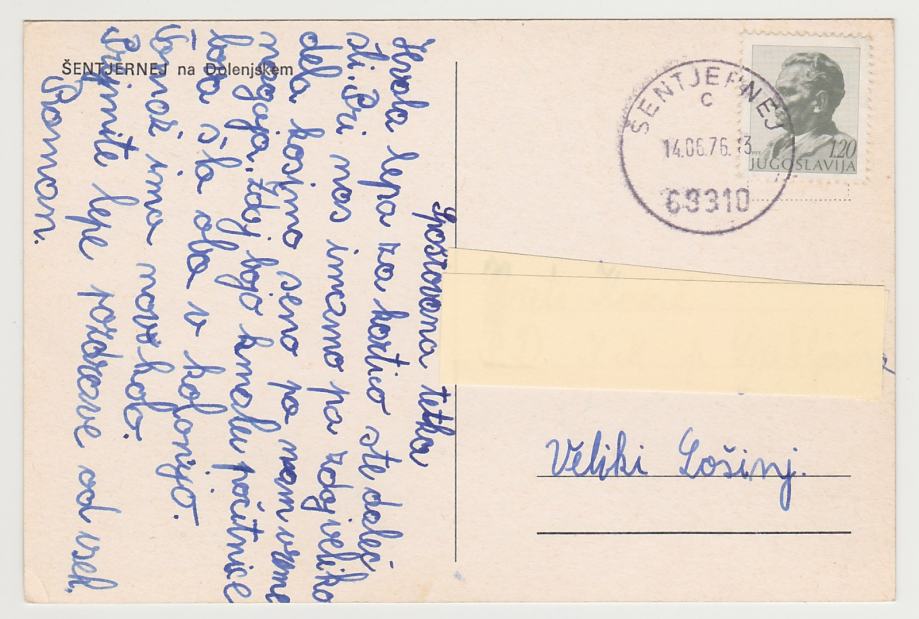 ŠENTJERNEJ na Dolenjskem
Spoštovana tetka
Hvala lepa za kartico ste daleč
šli. Pri nas imamo pa zdaj veliko
dela kosimo seno pa nam vreme
nagaja. Zdaj bojo kmalu počitnice
bova šla oba v kolonijo.
Tomaž ima novo kolo.
Prijmite lepe pozdrave od vseh.
Roman.
ŠENTJERNEJ
C
14.06.76.
68310
1.20
JUGOSLAVIJA
Veliki Lošinj.